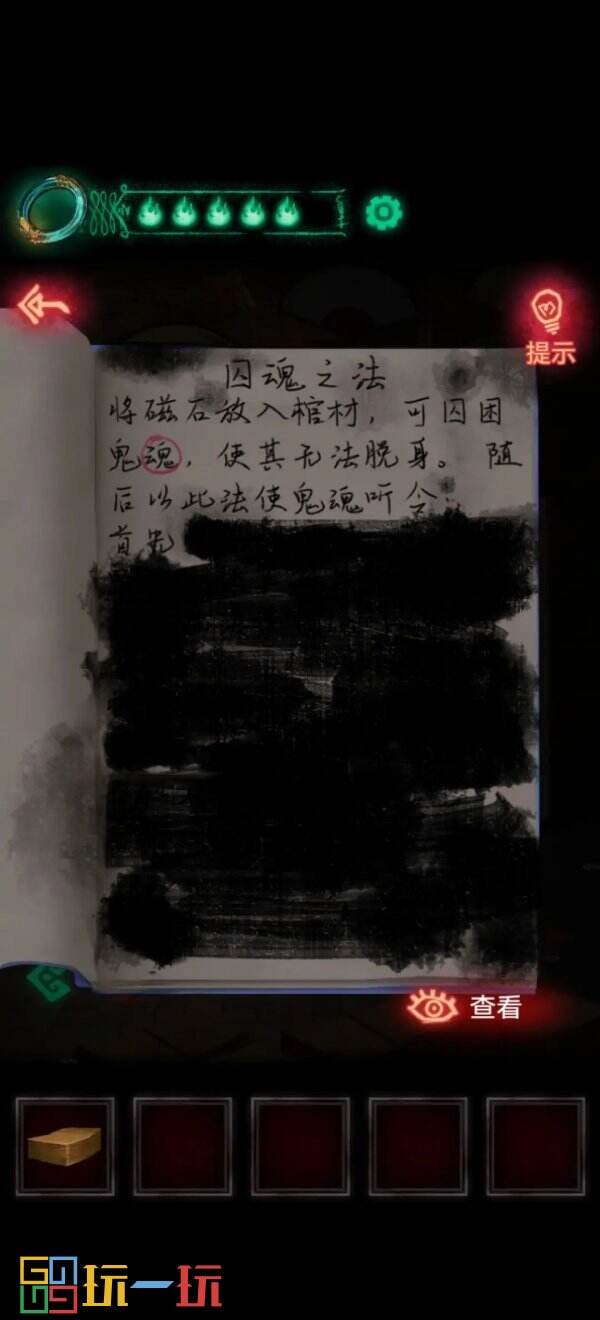 提示
囚魂之法
将磁石放入棺材，可囚困
鬼魂，使其无法脱身。随
后以此法使鬼魂听令：
首先
查看
玩一玩